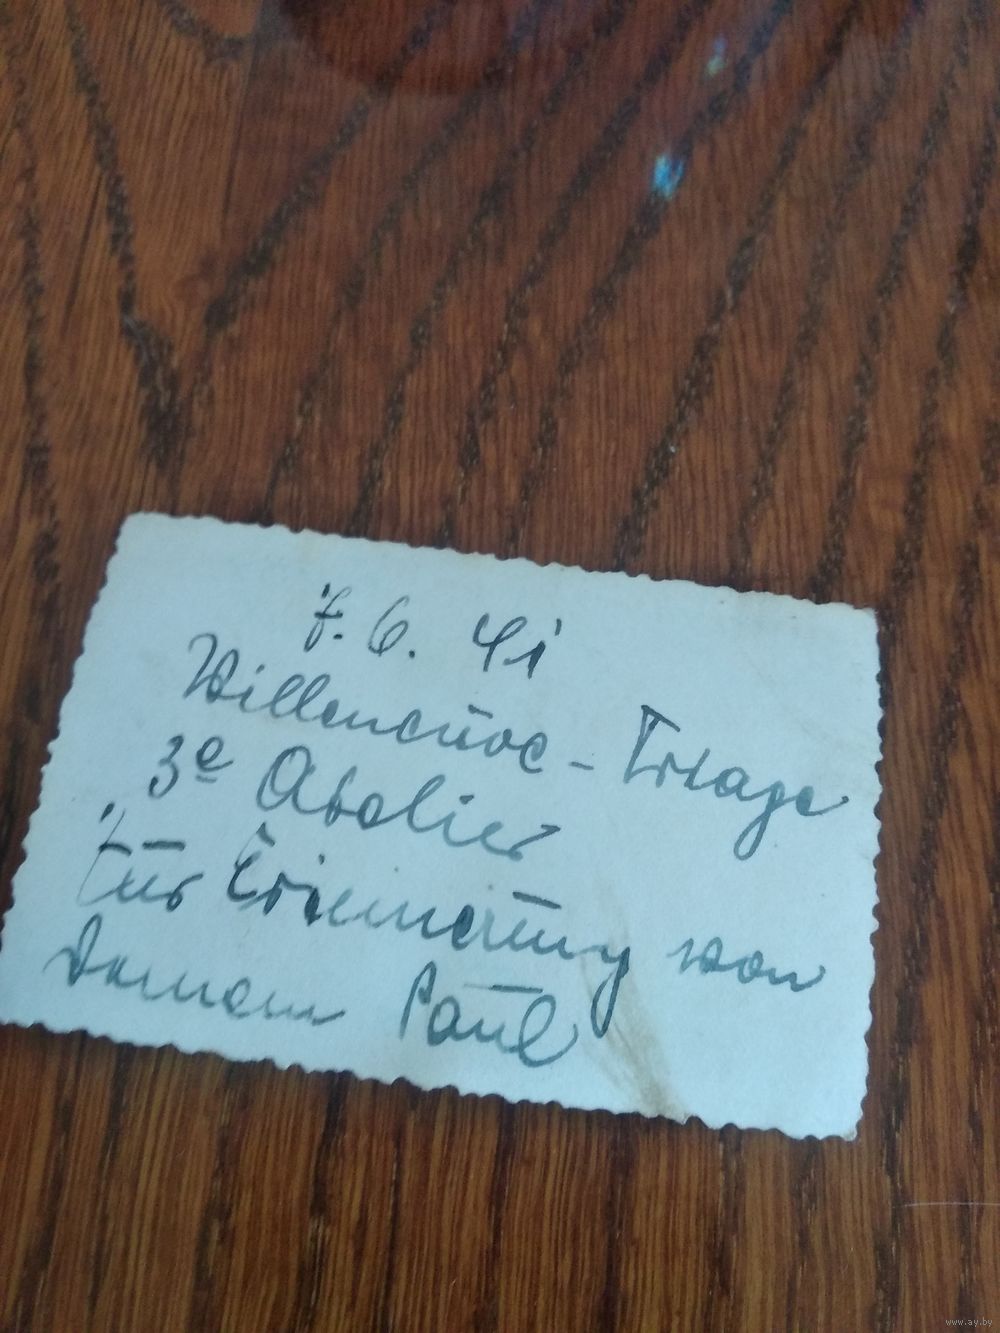 7. 6. 41
Villeneuve - Triage
3e Atelier
Zur Erinnerung von
Deinem Paul
www.ay.by